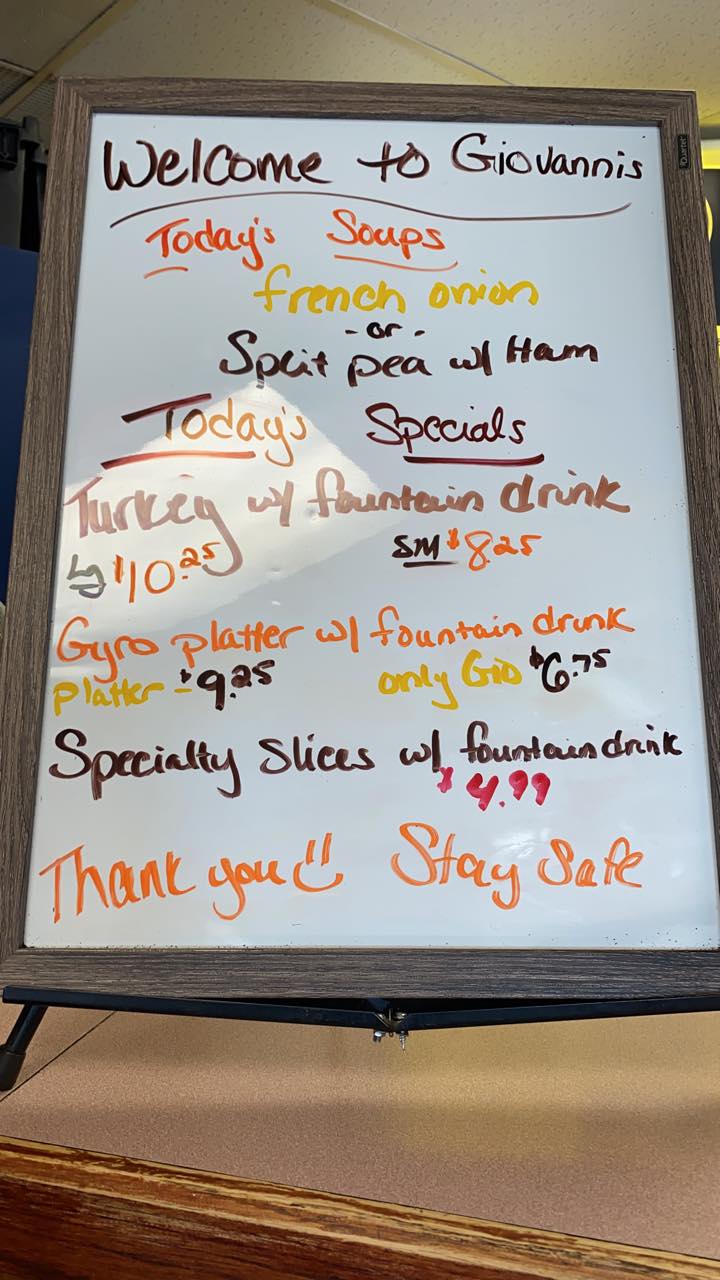 Welcome to Giovannis
Today's Soups
french onion
- or -
Split pea w/ Ham
Today's Specials
Turkey w/ fountain drink
Lg $10.25 SM $8.25
Gyro platter w/ fountain drink
Platter - $9.25 only Gio $6.75
Specialty Slices w/ fountain drink
$4.99
Thank you Stay Safe
Quartet